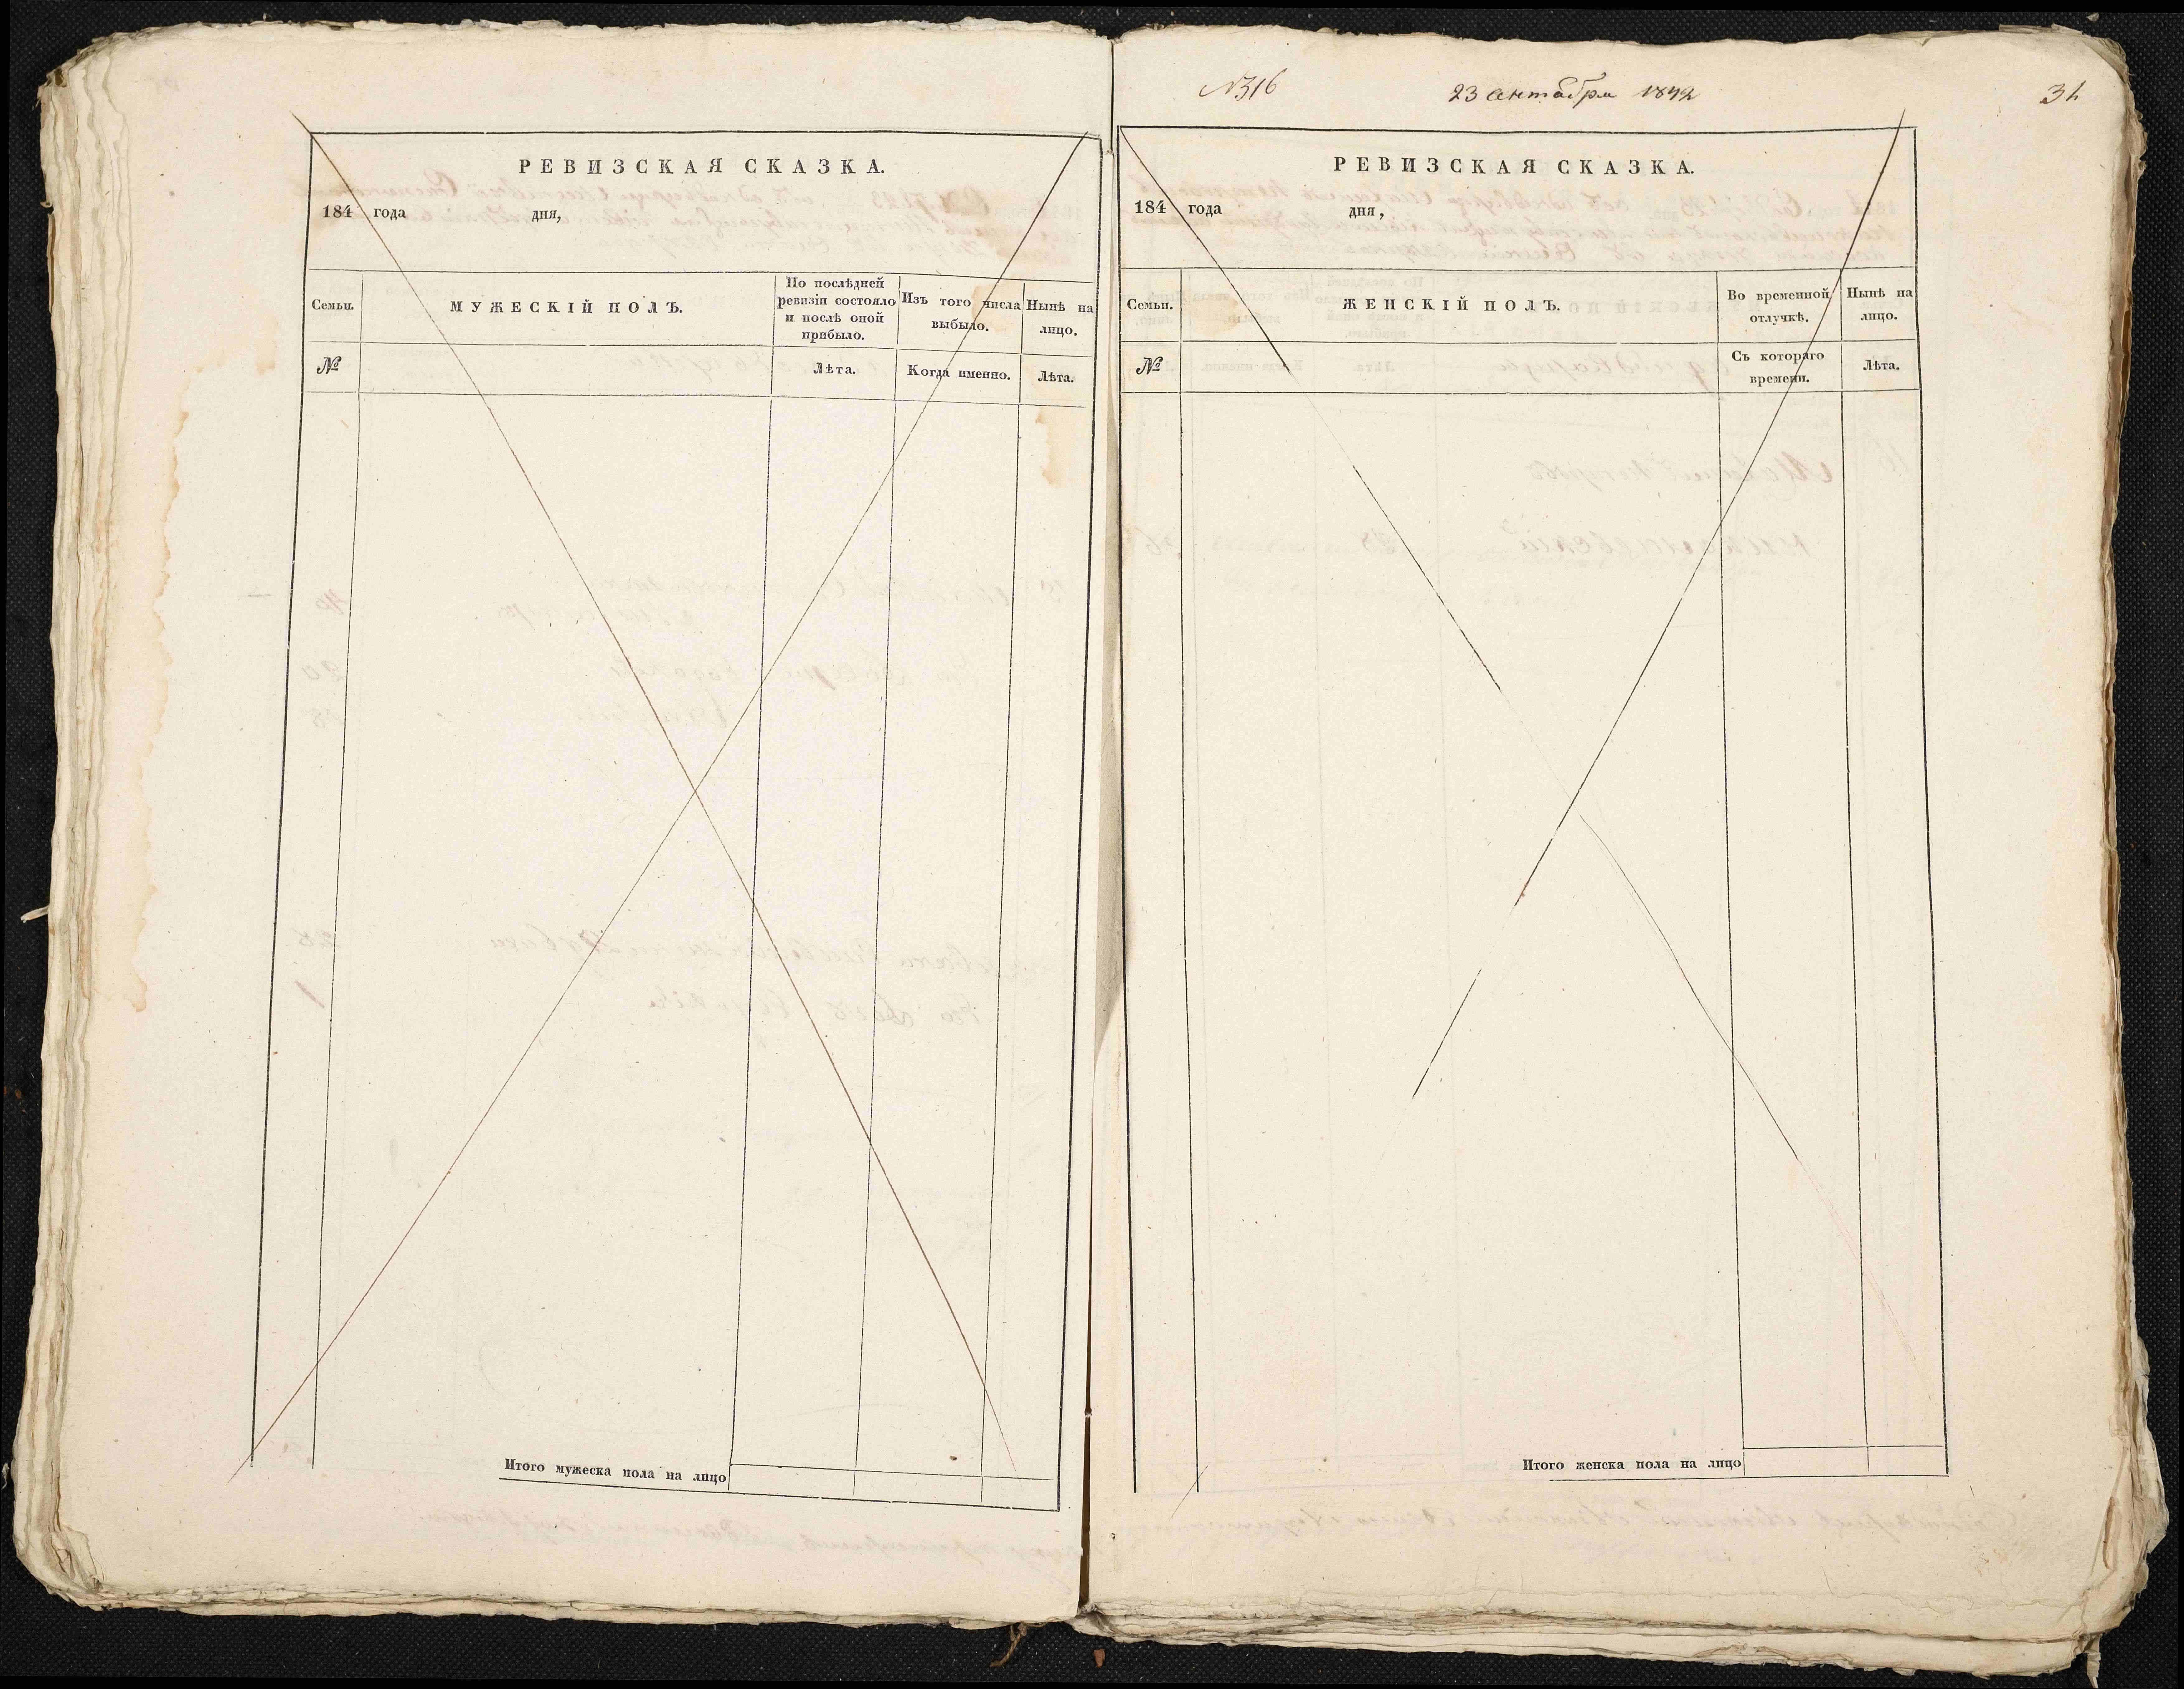 РЕВИЗСКАЯ СКАЗКА.
184 года дня,
Семьи.
МУЖЕСКІЙ ПОЛЪ.
По послѣдней
ревизіи состояло
и послѣ оной
прибыло.
Изъ того числа
выбыло.
Нынѣ на
лицо.
№
Лѣта.
Когда именно.
Лѣта.
Итого мужеска пола на лицо
№316
23 сентября 1842
31
РЕВИЗСКАЯ СКАЗКА.
184 года дня,
Семьи.
ЖЕНСКІЙ ПОЛЪ.
Во временной
отлучкѣ.
Нынѣ на
лицо.
№
Съ котораго
времени.
Лѣта.
Итого женска пола на лицо